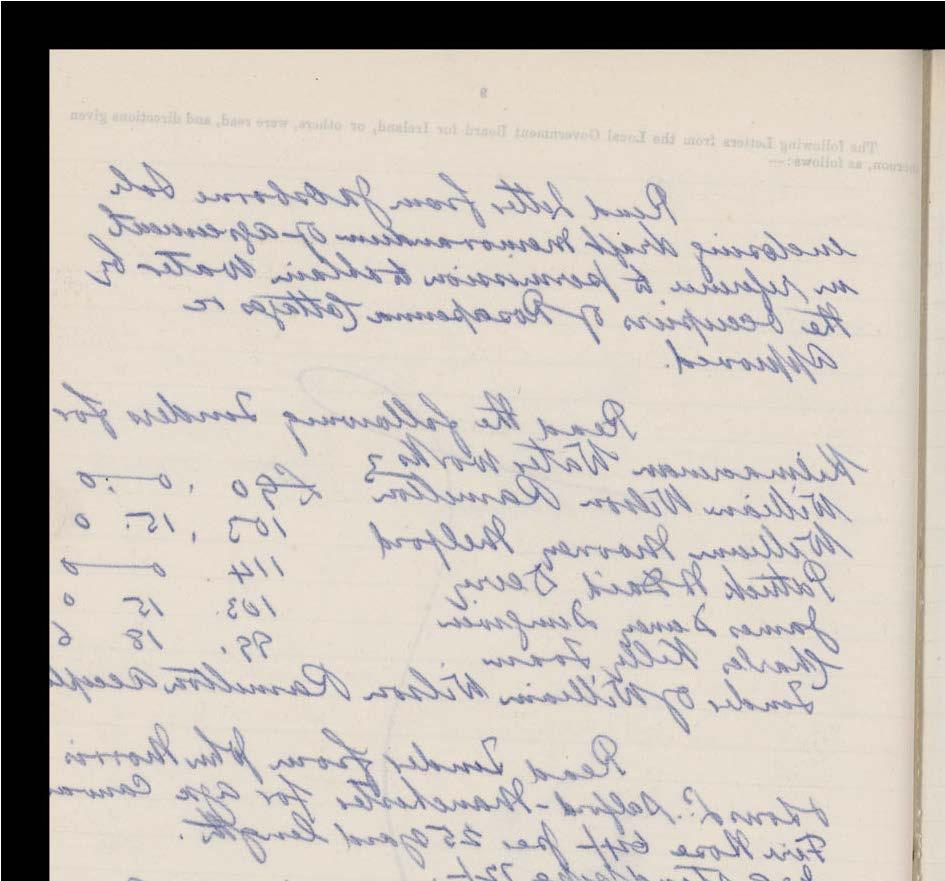 9
The following Letters from the Local Government Board for Ireland, or others, were read, and directions given
thereon, as follows:—
Read Letter from J Osborne Sol
enclosing draft Memorandum of agreement
in reference to permission to obtain Water by
the Occupiers of Rosapenna Cottages re
Approved.
Read the following Tenders for
Kilmacrenan Water Works
William Wilson Ramelton £90 . 0 — 0
William Mooney Milford 105 , 15. 0
Patrick 114 0 — 0
James 103. 15 0
Charles Kelly 99. 18 6
Tender of William Wilson Ramelton accept
Read Tender from John Morris
& Sons Ld. Salford - Manchester for
Fire Hose 25 yard length.